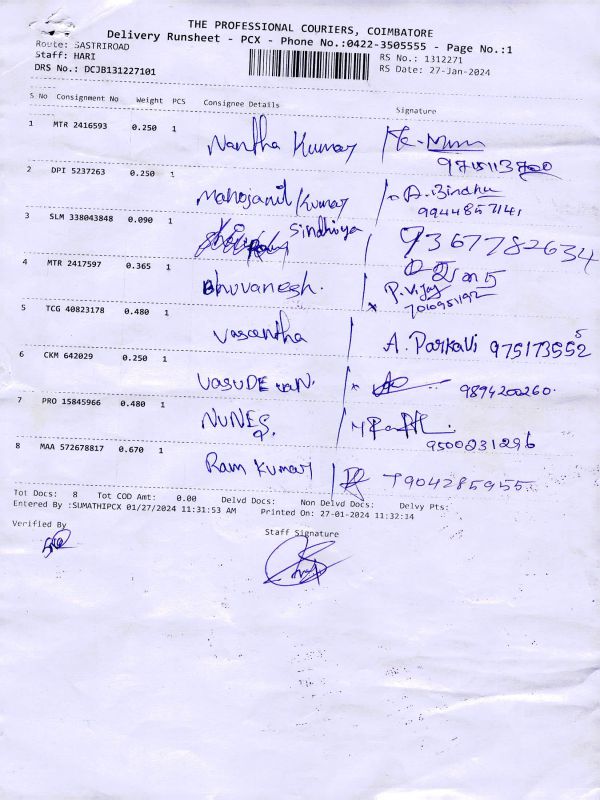 THE PROFESSIONAL COURIERS, COIMBATORE
Delivery Runsheet - PCX - Phone No.:0422-3505555 - Page No.:1
Route: SASTRIROAD
RS No.: 1312271
Staff: HARI
RS Date: 27-Jan-2024
DRS No.: DCJB131227101
S No Consignment No Weight PCS Consignee Details Signature
1 MTR 2416593 0.250 1 Nantha Kumar
2 DPI 5237263 0.250 1 Manojanil Kumar A.Bindhu
9944857141
3 SLM 338043848 0.090 1 Sindhiya 9367782634
4 MTR 2417597 0.365 1 Bhuvanesh. P.Vijay
7010951192
5 TCG 40823178 0.480 1 Vasantha A. Parkavi
6 CKM 642029 0.250 1 VASUDEvaN. 9894200260.
7 PRO 15845966 0.480 1 NUNES.
9500231296
8 MAA 572678817 0.670 1 Ram Kumar 7904285955
Tot Docs: 8 Tot COD Amt: 0.00 Delvd Docs: Non Delvd Docs: Delvy Pts:
Entered By :SUMATHIPCX 01/27/2024 11:31:53 AM Printed On: 27-01-2024 11:32:14
Verified By Staff Signature